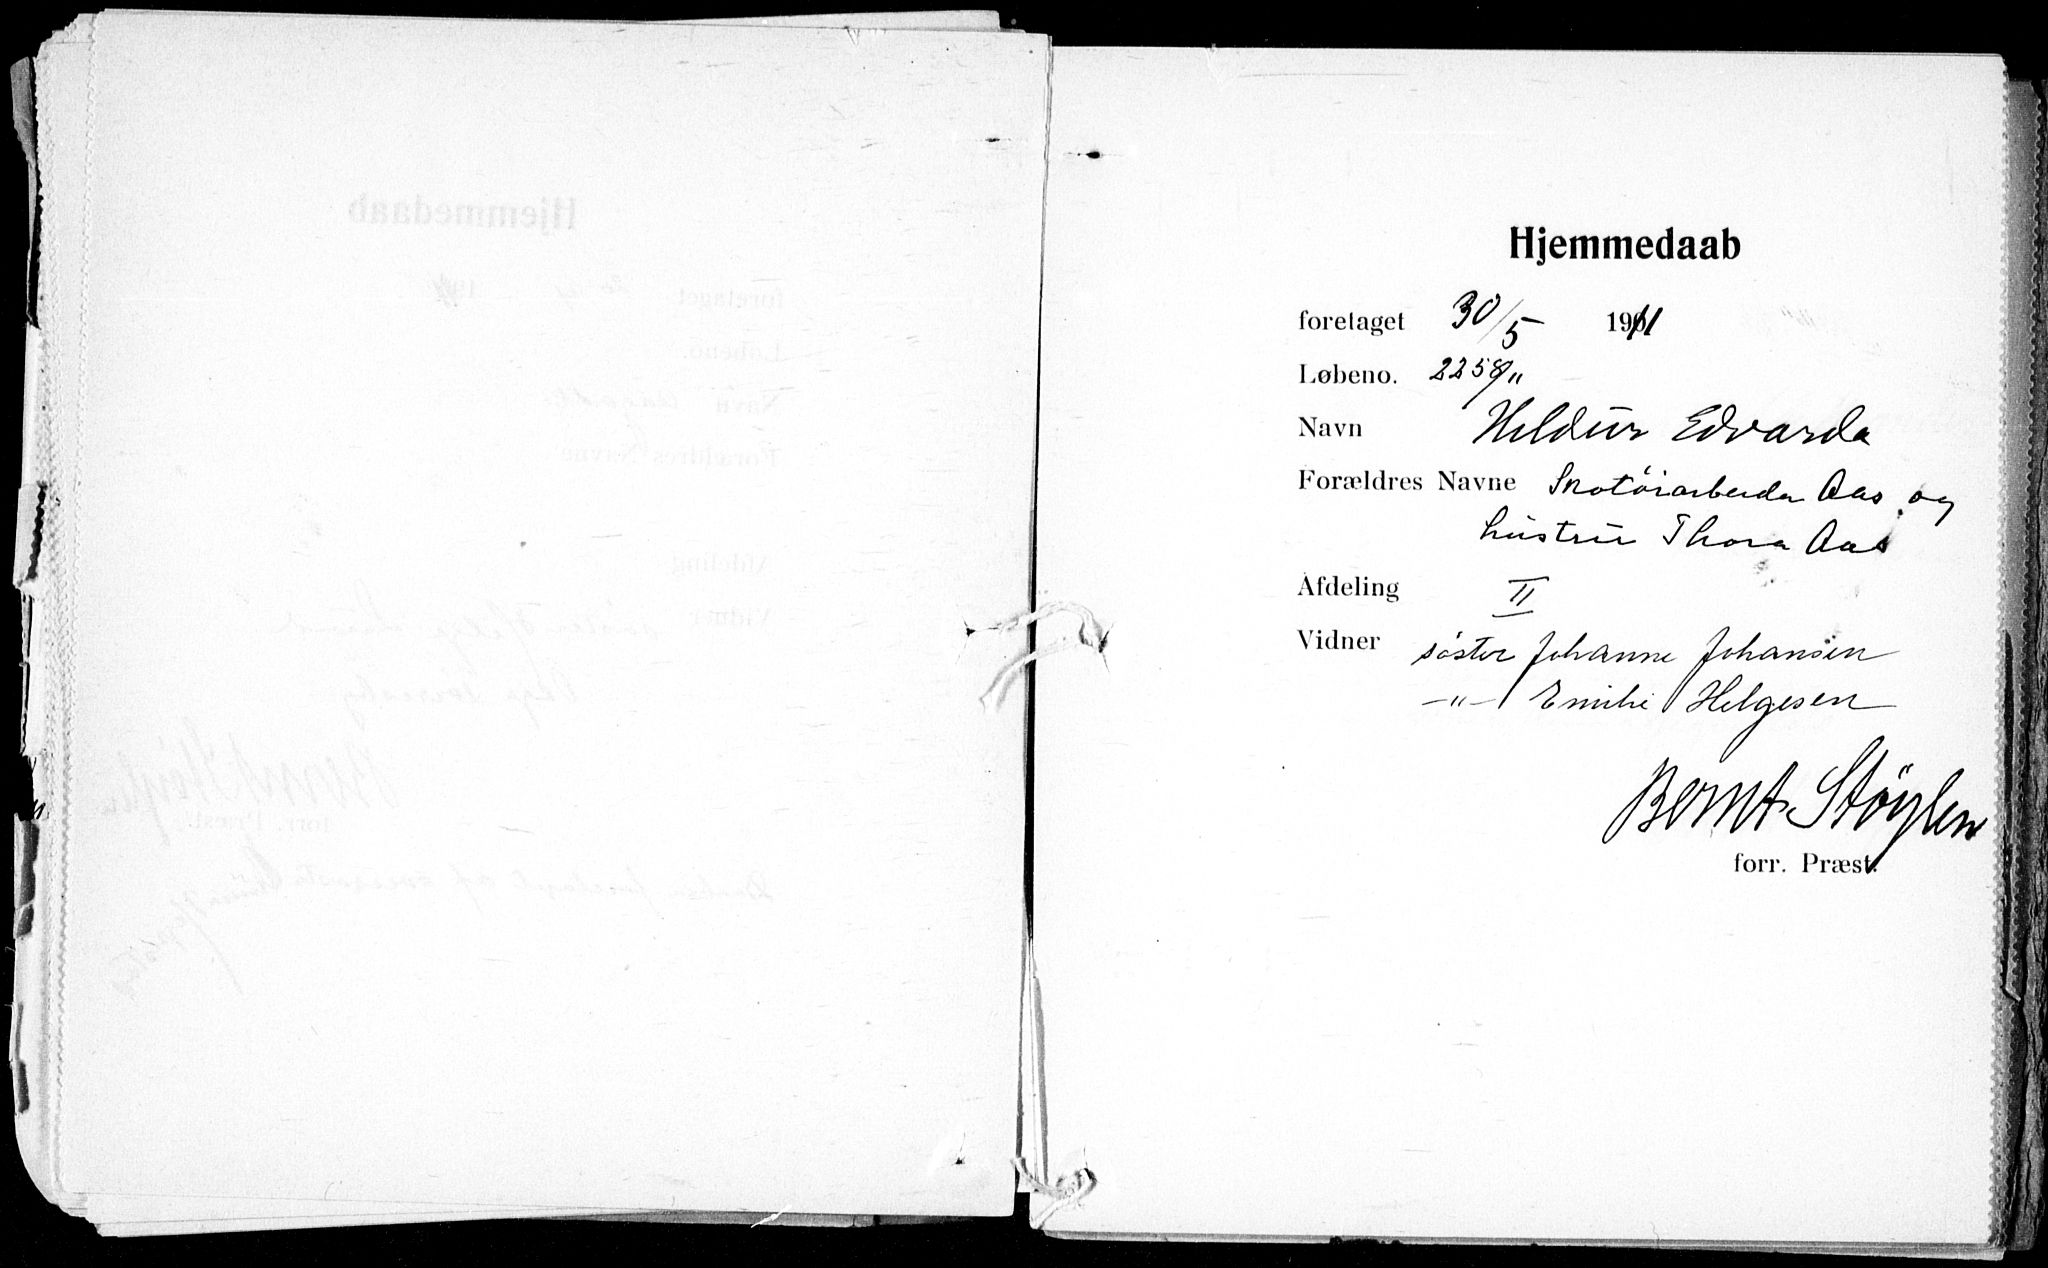 Hjemmedaab
foretaget 30/5 1911
Løbeno. 2258/11
Navn Hildur Edvarda
Forældres Navne Skotøiarbeider Aas og
hustru Thora Aas
Afdeling II
Vidner søster Johanne Johansen
—"— Emilie Helgesen
Bernt Støylen
forr. Præst.